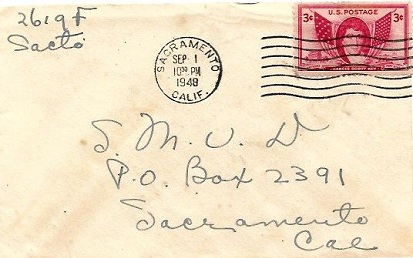 2619 F
Sacto
SACRAMENTO
SEP 1
PM
1948
CALIF.
U.S. POSTAGE
3¢ 3¢
FRANCIS SCOTT KEY
S. M. U. D
P.O. Box 2391
Sacramento
Cal